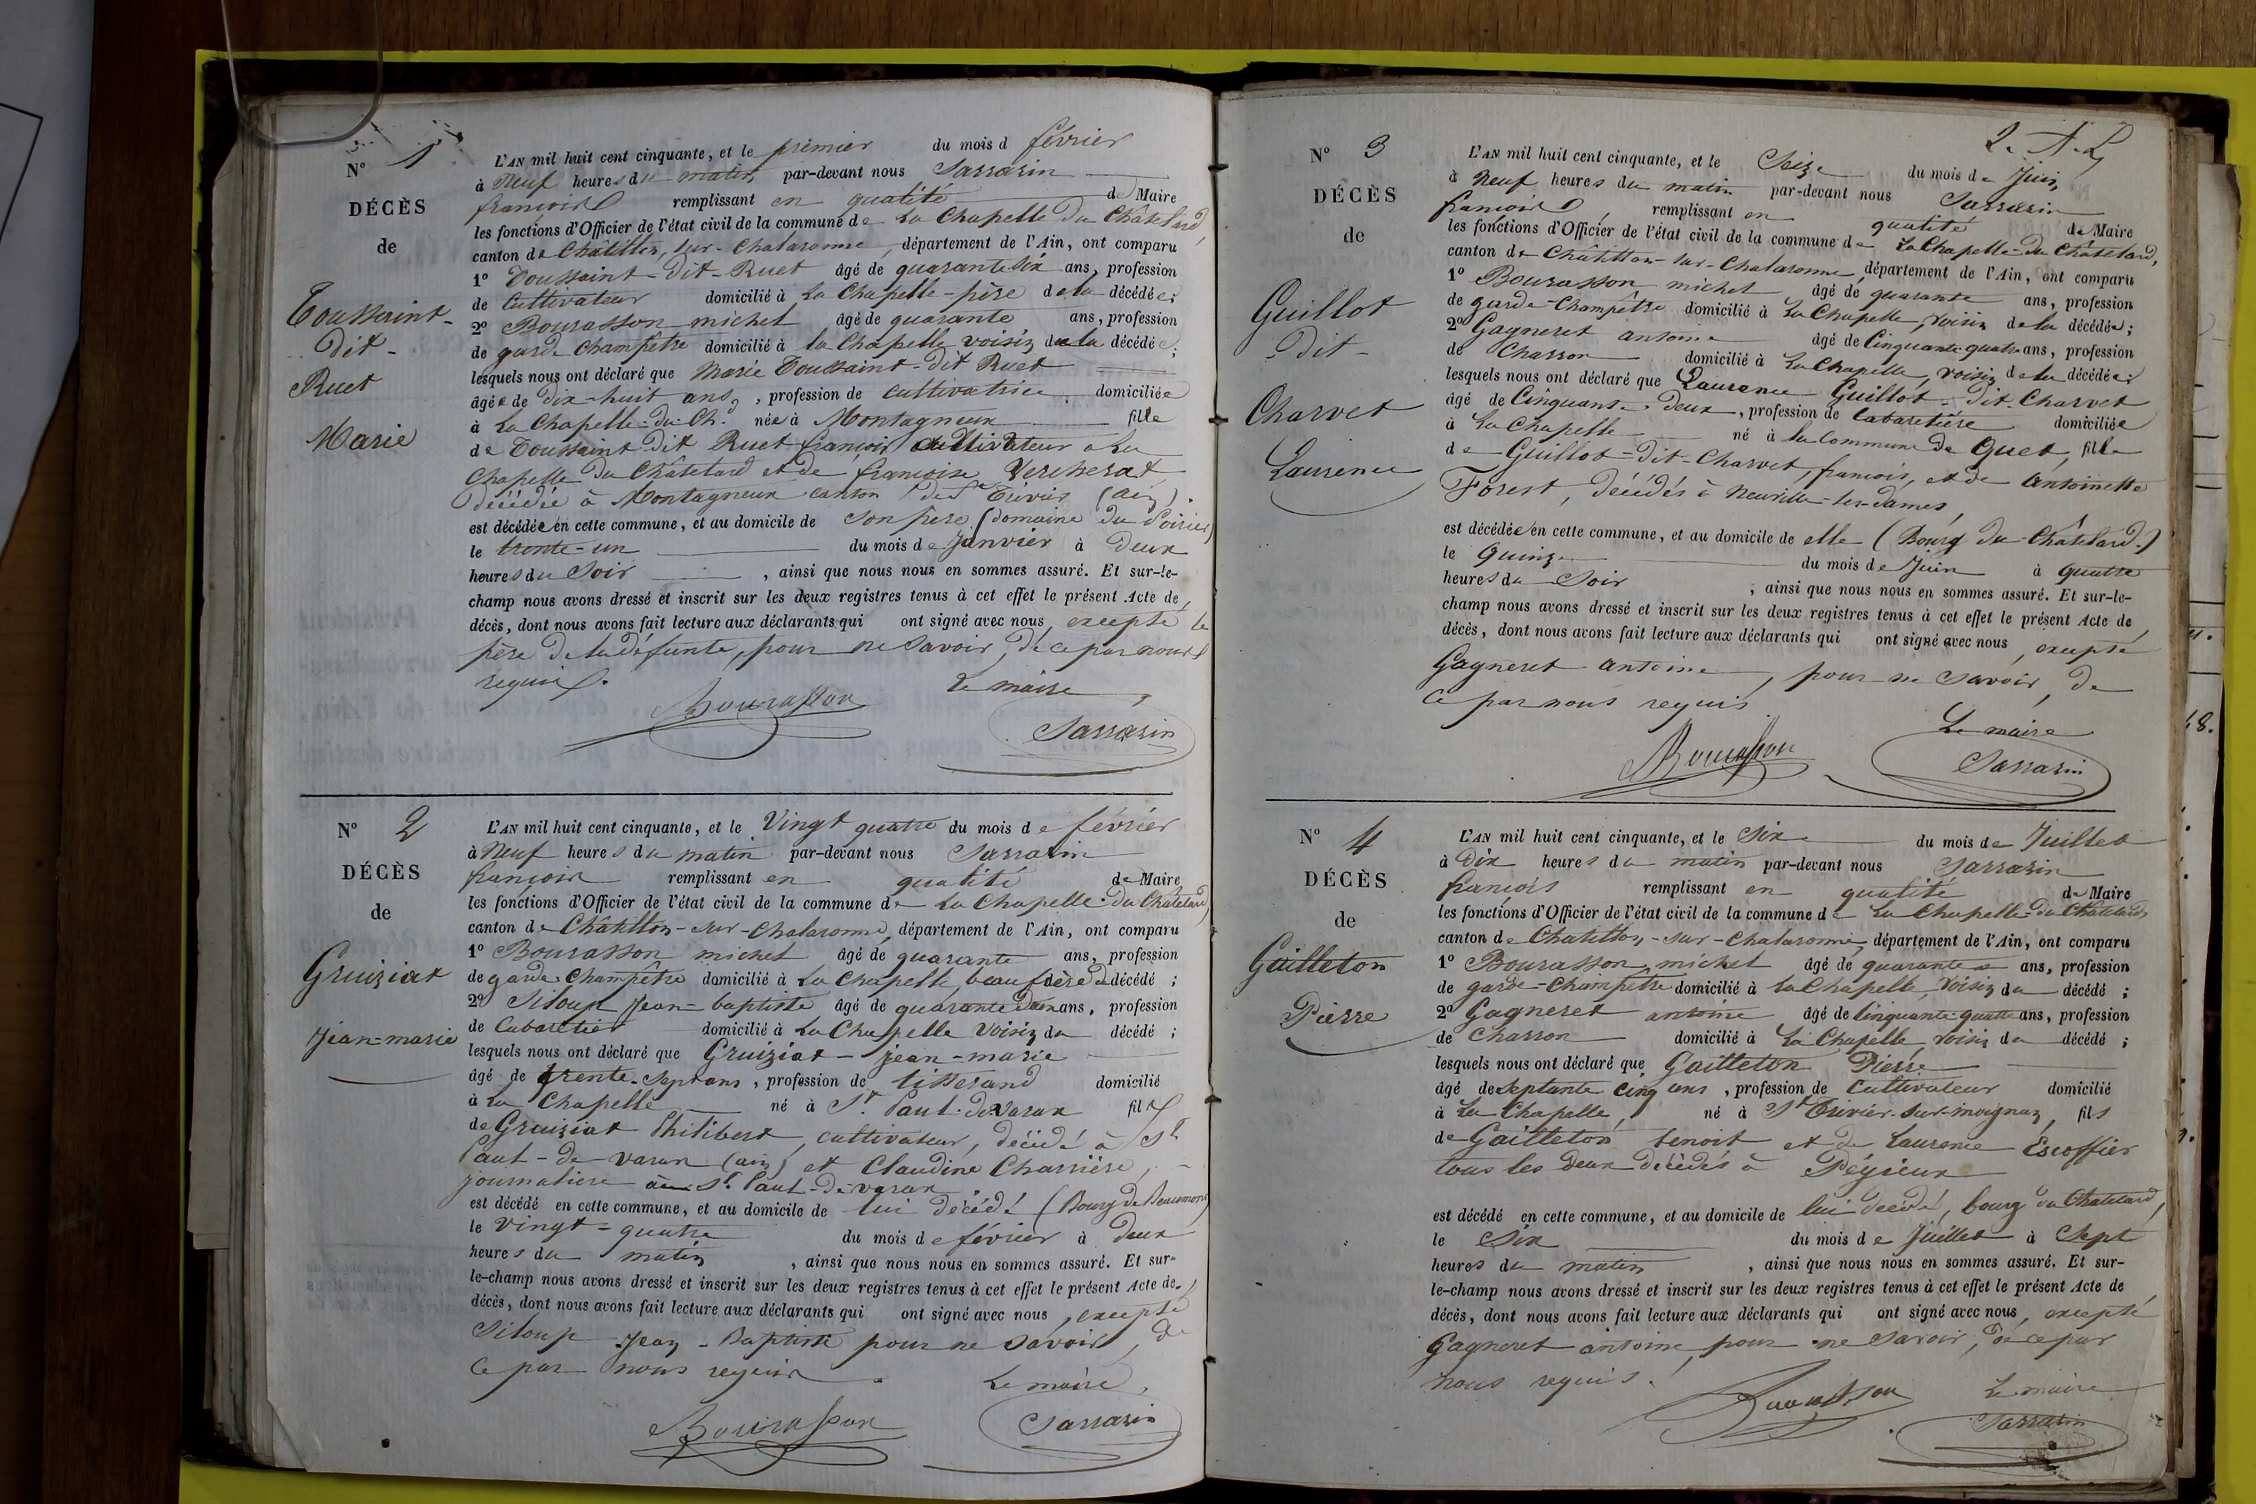 N° 1
DÉCÈS
de
Toussaint-
Dit-
Ruet
Marie
L'AN mil huit cent cinquante, et le premier du mois d février
à Neuf heures du matin par-devant nous Sarrasin
françois remplissant en qualité de Maire
les fonctions d'Officier de l'état civil de la commune de La Chapelle Du Châtelard,
canton de Châtillon, sur-Chalaronne, département de l'Ain, ont comparu
1° Toussaint-Dit-Ruet âgé de quarante six ans, profession
de Cultivateur domicilié à La Chapelle-père de la décédée;
2° Bourasson michel âgé de quarante ans, profession
de garde champêtre domicilié à la Chapelle voisin de la décédée;
lesquels nous ont déclaré que Marie Toussaint-dit Ruet
âgée de dix-huit ans, profession de cultivatrice domiciliée
à La Chapelle-du-Ch. née à Montagneux fille
de Toussaint Dit Ruet françois cultivateur à La
Chapelle du Châtelard et de françoise Vercherat
décédée à Montagneux canton de St Trivier (ain).
est décédée en cette commune, et au domicile de son père (domaine du Poirier)
le trente-un du mois de Janvier à Deux
heures du Soir, ainsi que nous nous en sommes assuré. Et sur-le-
champ nous avons dressé et inscrit sur les deux registres tenus à cet effet le présent Acte de
décès, dont nous avons fait lecture aux déclarants qui ont signé avec nous, excepté le
père de la défunte, pour ne savoir, de ce par nous
requis.
Le maire,
Bourasson
Sarrasin
N° 2
DÉCÈS
de
Gruiziat
Jean-marie
L'AN mil huit cent cinquante, et le Vingt quatre du mois de février
à Neuf heures du matin par-devant nous Sarrasin
françois remplissant en qualité de Maire
les fonctions d'Officier de l'état civil de la commune de La Chapelle-Du Châtelard
canton de Châtillon-sur-Chalaronne, département de l'Ain, ont comparu
1° Bourasson michel âgé de quarante ans, profession
de garde-Champêtre domicilié à La Chapelle, beaufrère du décédé;
2° Siloup Jean-baptiste âgé de quarante deux ans, profession
de Cabaretier domicilié à La Chapelle voisin du décédé;
lesquels nous ont déclaré que Gruiziat-jean-marie
âgé de trente-sept ans, profession de tisserand domicilié
à La Chapelle né à St Paul-de Varax fils
de Gruiziat Philibert, cultivateur, décédé à St
Paul-de-varax (ain) et Claudine Charrière,
journalière à St Paul-de-varax
est décédé en cette commune, et au domicile de lui décédé (Bourg de Beaumont)
le vingt-quatre du mois de février à Deux
heures du matin, ainsi que nous nous en sommes assuré. Et sur-
le-champ nous avons dressé et inscrit sur les deux registres tenus à cet effet le présent Acte de
décès, dont nous avons fait lecture aux déclarants qui ont signé avec nous, excepté
Siloup Jean-Baptiste pour ne savoir, de
ce par nous requis.
Le maire,
Bourasson
Sarrasin
N° 3
DÉCÈS
de
Guillot
Dit-
Charvet
Laurence
L'AN mil huit cent cinquante, et le Seize du mois de Juin
à Neuf heures du matin par-devant nous Sarrasin
françois remplissant en qualité de Maire
les fonctions d'Officier de l'état civil de la commune de La Chapelle-Du Châtelard,
canton de Châtillon-sur-Chalaronne, département de l'Ain, ont comparu
1° Bourasson michel âgé de quarante ans, profession
de garde-Champêtre domicilié à La Chapelle, voisin de la décédée;
2° Gagneret antoine âgé de Cinquante quatre ans, profession
de Charron domicilié à La Chapelle, voisin de la décédée;
lesquels nous ont déclaré que Laurence Guillot-Dit-Charvet
âgé de Cinquante-Deux, profession de Cabaretière domiciliée
à La Chapelle né à la Commune de Quet, fille
de Guillot-Dit-Charvet, françois, et de Antoinette
Forest, décédés à Neuville-les-dames,
est décédée en cette commune, et au domicile de elle (Bourg du Châtelard.)
le Quinze du mois de Juin à quatre
heures du Soir, ainsi que nous nous en sommes assuré. Et sur-le-
champ nous avons dressé et inscrit sur les deux registres tenus à cet effet le présent Acte de
décès, dont nous avons fait lecture aux déclarants qui ont signé avec nous, excepté
Gagneret antoine, pour ne savoir, de
ce par nous requis
Le maire
Bourasson
Sarrasin
N° 4
DÉCÈS
de
Gailleton
Pierre
L'AN mil huit cent cinquante, et le Six du mois de Juillet
à Dix heures du matin par-devant nous Sarrasin
françois remplissant en qualité de Maire
les fonctions d'Officier de l'état civil de la commune de La Chapelle-du Châtelard
canton de Châtillon-sur-Chalaronne, département de l'Ain, ont comparu
1° Bourasson michel âgé de quarante ans, profession
de garde-Champêtre domicilié à La Chapelle, voisin du décédé;
2° Gagneret antoine âgé de Cinquante-quatre ans, profession
de Charron domicilié à La Chapelle, voisin du décédé;
lesquels nous ont déclaré que Gailleton Pierre
âgé de Septante cinq ans, profession de Cultivateur domicilié
à La Chapelle, né à St Trivier-sur-moignan, fils
de Gailleton benoit et de Laurence Escoffier
tous les deux décédés à Péyzieux
est décédé en cette commune, et au domicile de lui décédé, bourg du Châtelard,
le Six du mois de Juillet à Sept
heures du matin, ainsi que nous nous en sommes assuré. Et sur-
le-champ nous avons dressé et inscrit sur les deux registres tenus à cet effet le présent Acte de
décès, dont nous avons fait lecture aux déclarants qui ont signé avec nous, excepté
Gagneret antoine, pour ne savoir, de ce par
nous requis.
Le maire
Bourasson
Sarrasin